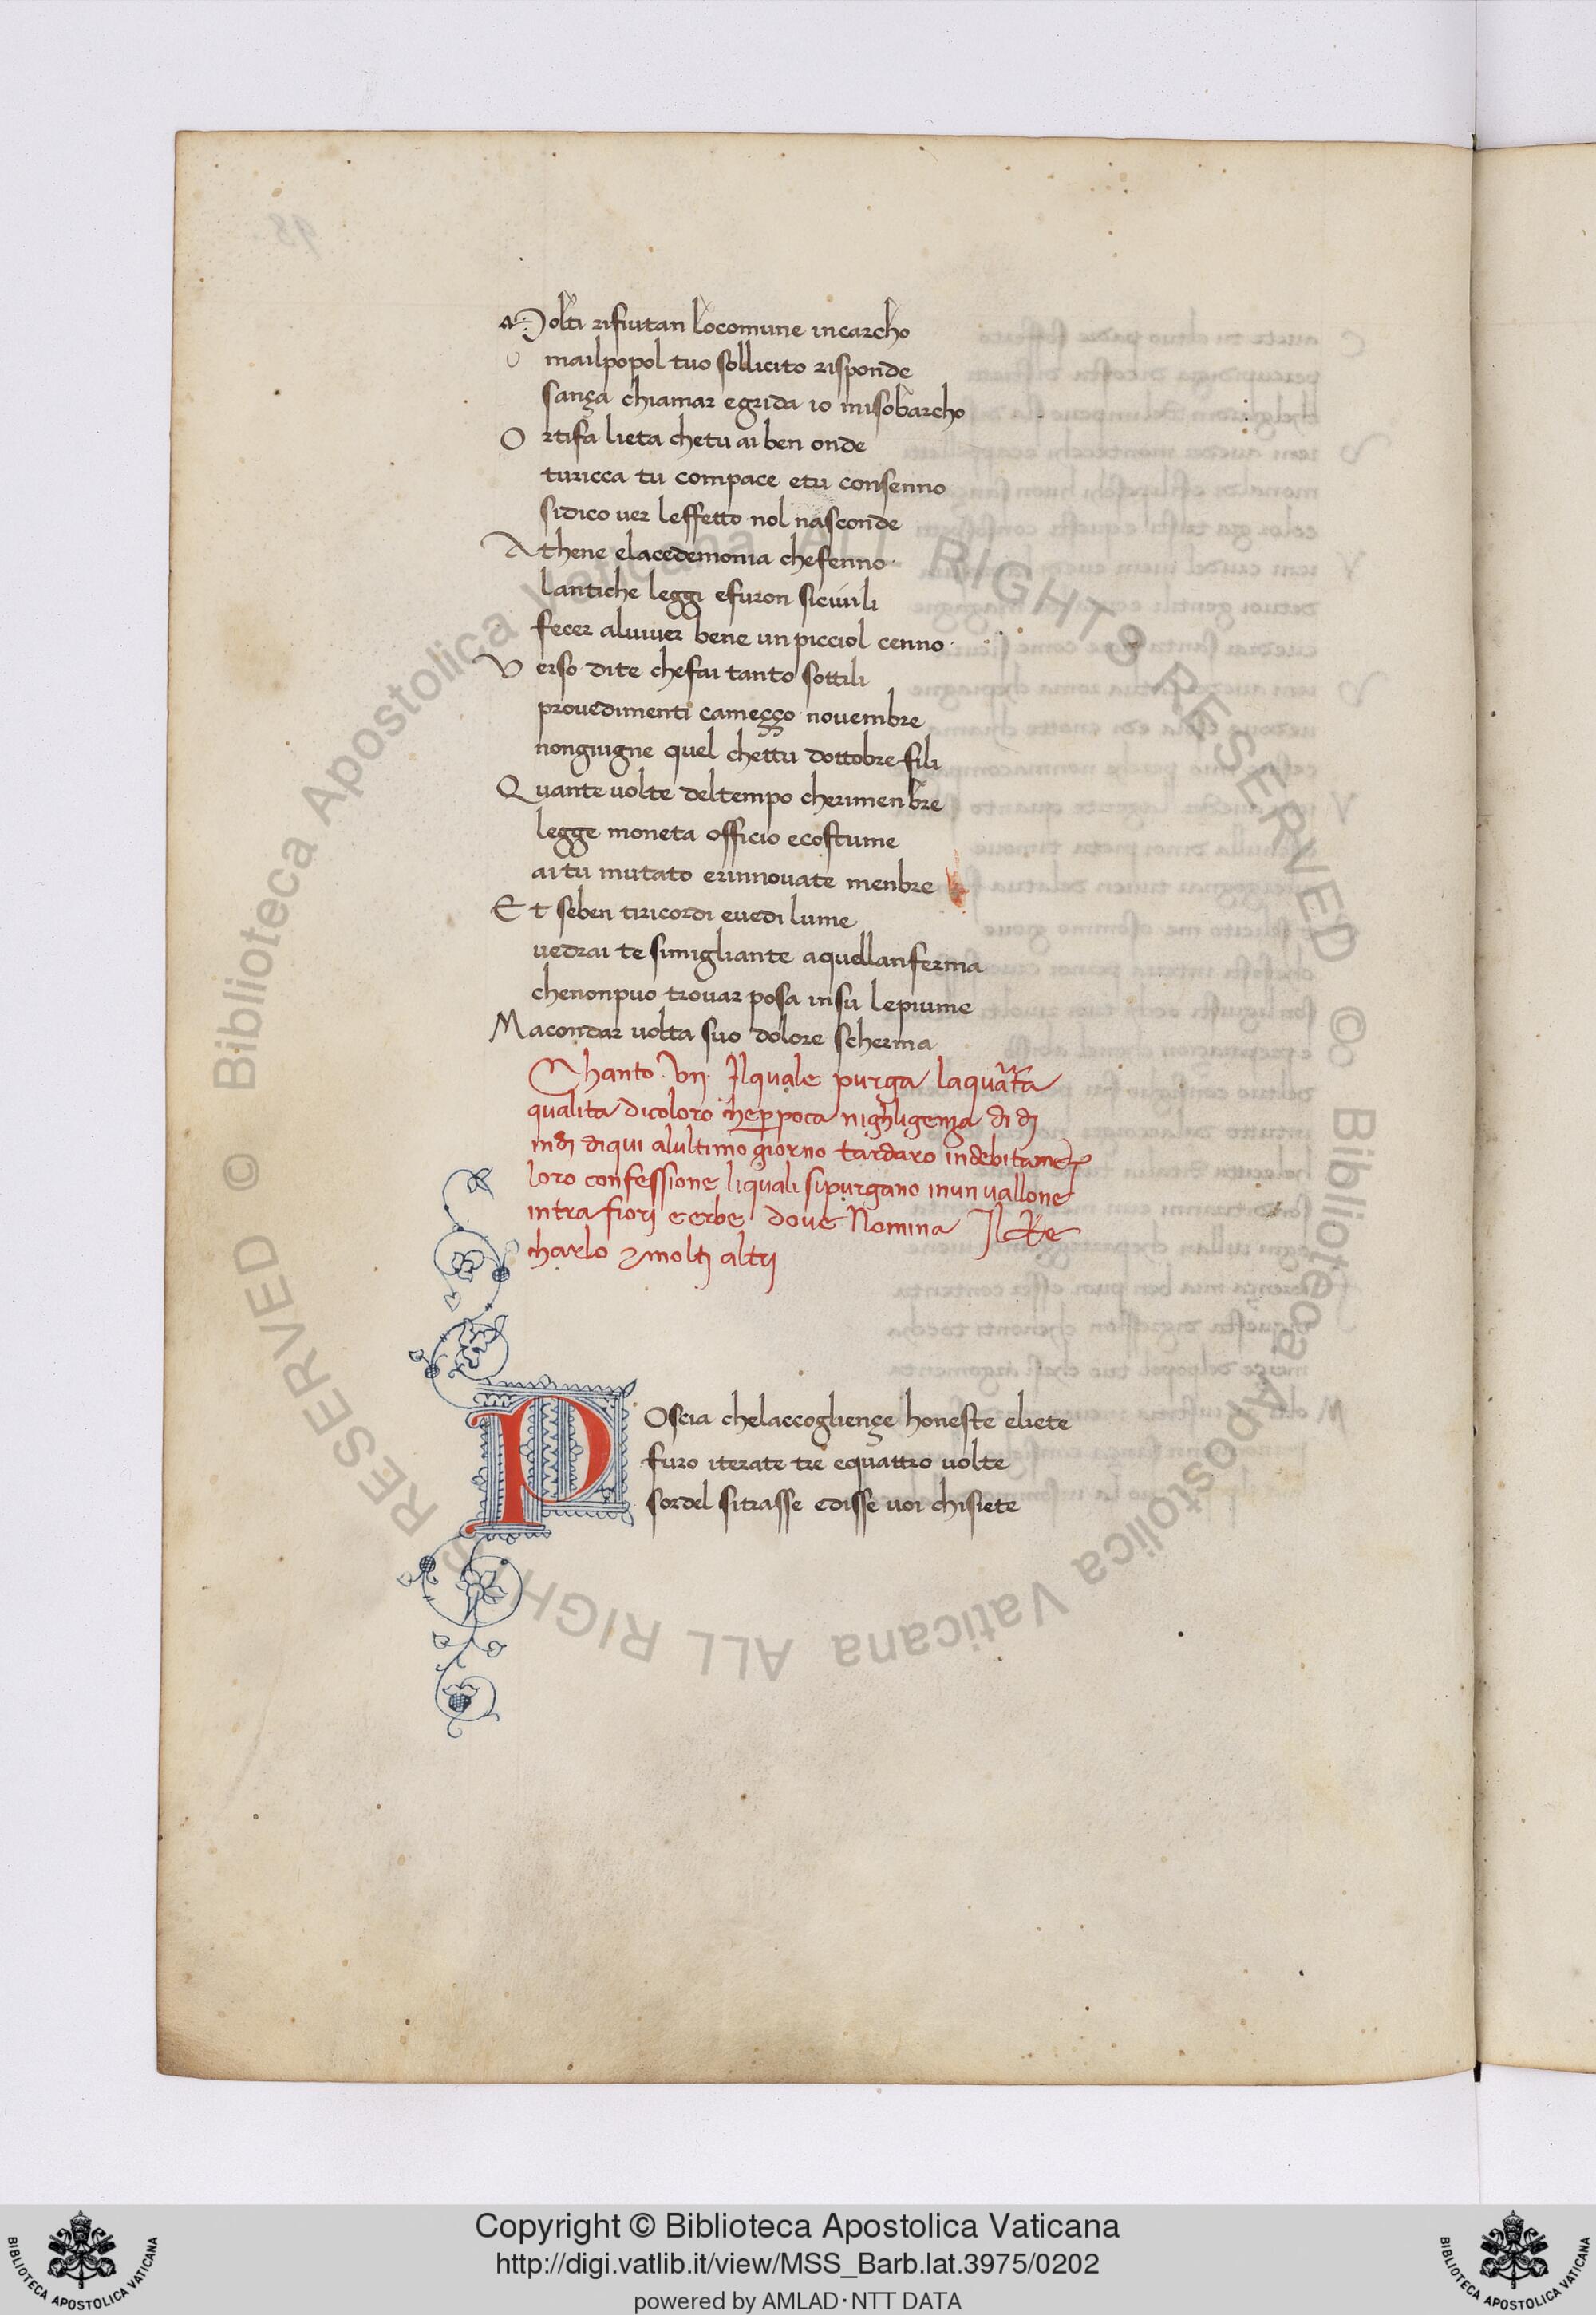 Molti rifiutan locomune incarcho
mailpopol tuo sollicito risponde
sança chiamar egrida io misobarcho
Ortifa lieta chetu ai ben onde
turicca tu compace etu consenno
sidico uer leffetto nol nasconde
Athene elacedemonia chefenno
lantiche leggi efuron siciuili
fecer aluiuer bene un picciol cenno
Verso dite chefai tanto sottili
prouedimenti cameçço novembre
nongiugne quel chettu dottobre fili
Quante uolte deltempo cherimenbre
legge moneta officio ecostume
aitu mutato erinnouate menbre
Et seben tiricordi euedi lume
uedrai te simigliante aquellanferma
chenonpuo trouar posa insu lepiume
Macondar uolta suo dolore scherma
Chanto VII Ilquale purga laquarta
qualita dicoloro che per poca nighligenza di
diqui alultimo giorno tardaro indebitame
loro confessione liquali sipurgano inun uallone
intra fiori eerbe doue Nomina Il Re
charlo & molti altri
Poscia chelaccogliençe honeste eliete
furo iterate tre equattro uolte
sordel sitrasse edisse uoi chisiete
© Biblioteca Apostolica Vaticana ALL RIGHTS RESERVED © Biblioteca Apostolica Vaticana ALL RIGHTS RESERVED
Copyright © Biblioteca Apostolica Vaticana
http://digi.vatlib.it/view/MSS_Barb.lat.3975/0202
powered by AMLAD·NTT DATA
BIBLIOTECA APOSTOLICA VATICANA
BIBLIOTECA APOSTOLICA VATICANA